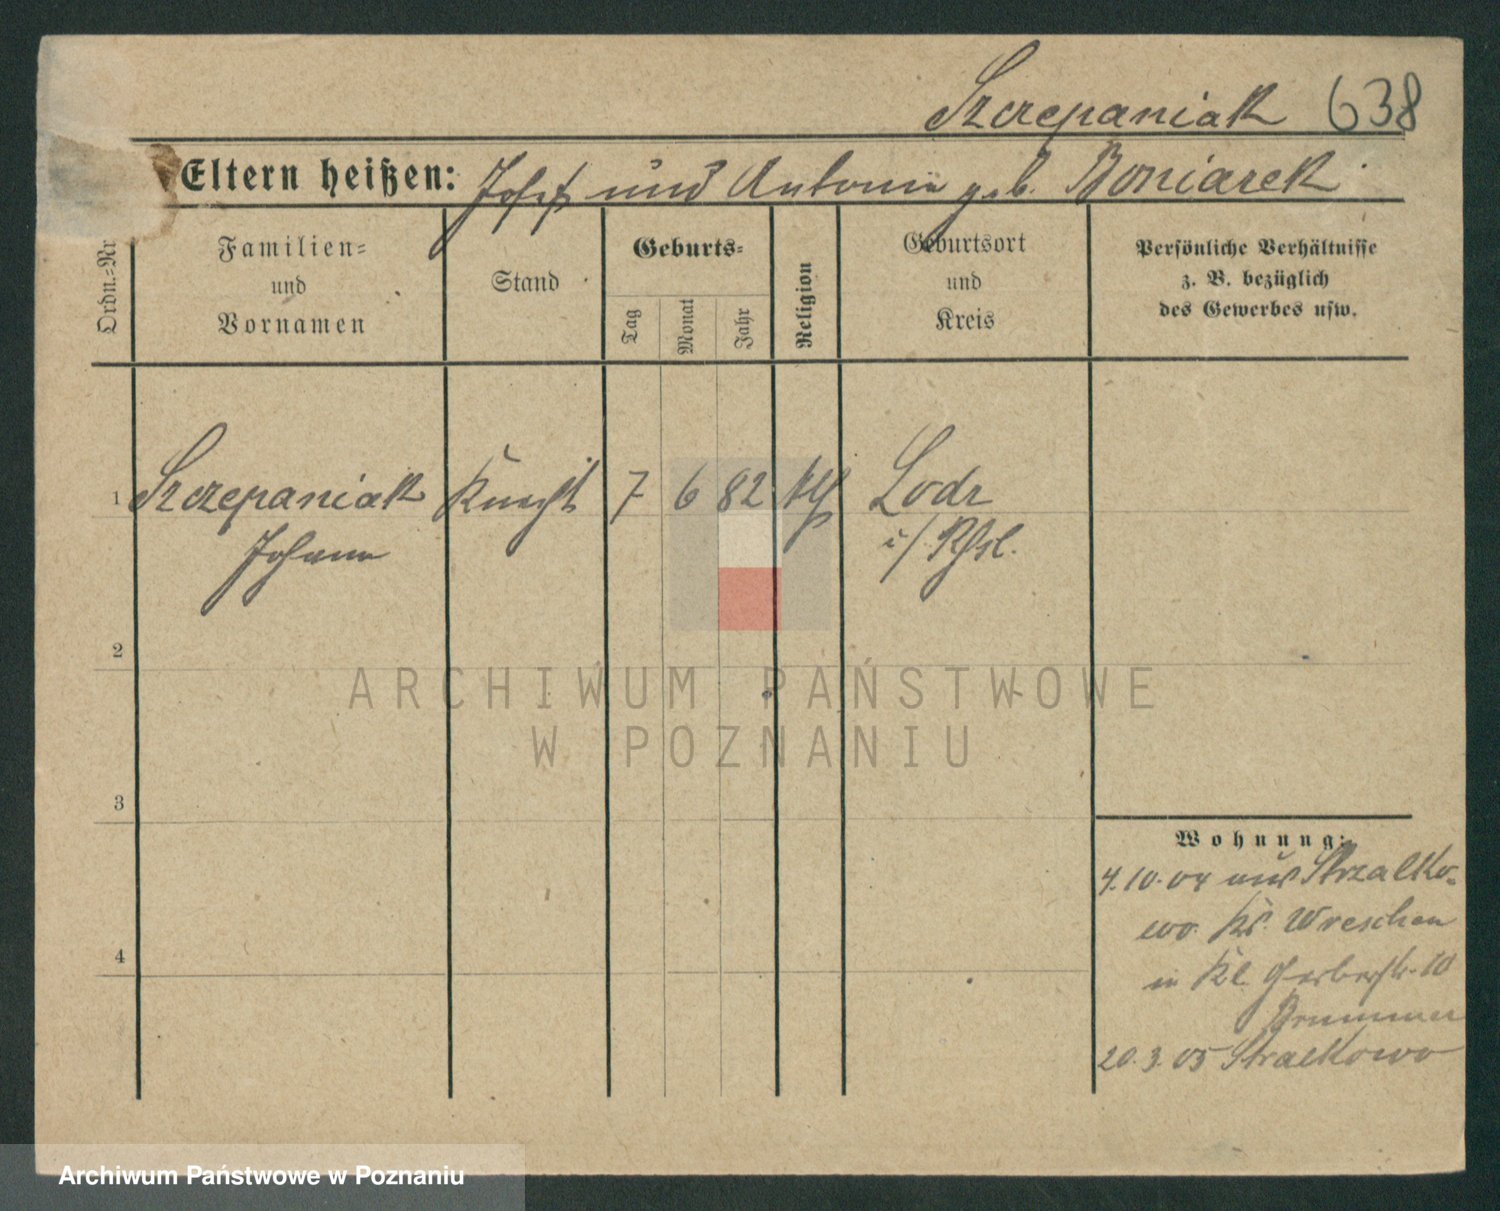 Szczepaniak 638
Eltern heißen: Josef und Antonie geb. Boniarek
Ordn.-Nr
Familien-
und
Vornamen
Stand
Geburts-
Tag
Monat
Jahr
Religion
Geburtsort
und
Kreis
Persönliche Verhältnisse
z. B. bezüglich
des Gewerbes usw.
1 Szczepaniak Knecht 7 6 82 kth Lodz
Johann i/ Rßl.
2
3
4
Wohnung:
4.10.04 aus Strzalko-
wo Kr. Wreschen
in Kl. Gerberstr. 10
Brummer
20.3.05 Stralkowo
ARCHIWUM PAŃSTWOWE
W POZNANIU
Archiwum Państwowe w Poznaniu